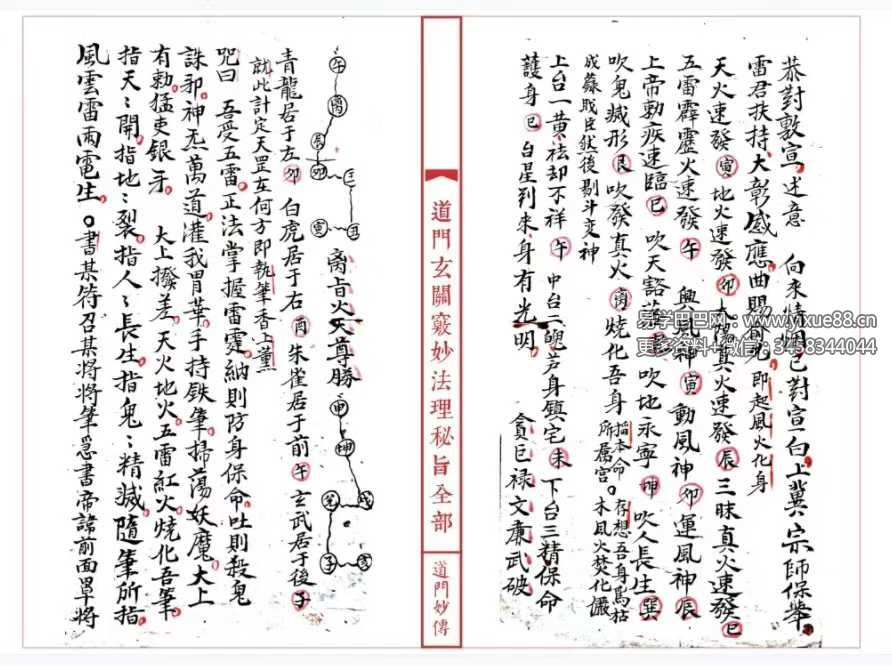 恭對敷宣 述意 向來情因已對宣白上冀宗師保舉
雷君扶持大彰感應曲賜 即起風火化身
天火速發寅地火速發卯太陽真火速發辰三昧真火速發巳
五雷霹靂火速發午 興風神寅動風神卯運風神辰
上帝勅疾速臨巳 吹天豁 吹地永寧坤吹人長生巽
吹鬼滅形艮吹發真火 燒化吾身 本命所属宮 存想吾身為枯木風火焚化
成然後剔斗变神
上台一黄祛却不祥午 中台一魄芦身鎮宅未 下台三精保命
護身巳 台星到來身有光明 貪巨禄文廉武破
道門玄關竅妙法理秘旨全部
道門妙傳
午
卯
寅
丑
离旨火天尊勝
申
坤
戌
亥
子
青龍居于左卯 白虎居于右酉 朱雀居于前午 玄武居于後子
就此計定天罡在何方即執筆香上薰
咒曰 吾受五雷正法掌握雷霆納則防身保命吐則殺鬼
誅邪神炁萬道灌我胃華手持铁筆掃蕩妖魔大上
有勅猛吏銀牙 大上撥差天火地火五雷紅火燒化吾筆
指天〻開指地〻裂指人〻長生指鬼〻精滅隨筆所指
風雲雷雨電生 書某符召某將將筆為書帝諱前面罩將
易学巴巴网：www.yixue88.cn
更多资料+微信：3458344044